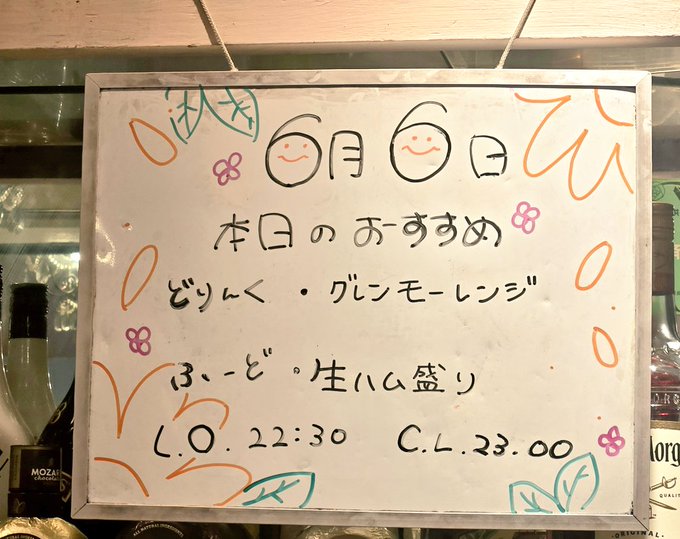 6月6日
本日のおーすすめ
どりんく ・グレンモーレンジ
ふーど ・生ハム盛り
L.O. 22:30 C.L.23.00
MOZAR
chocola
Morg
ORIGINAL